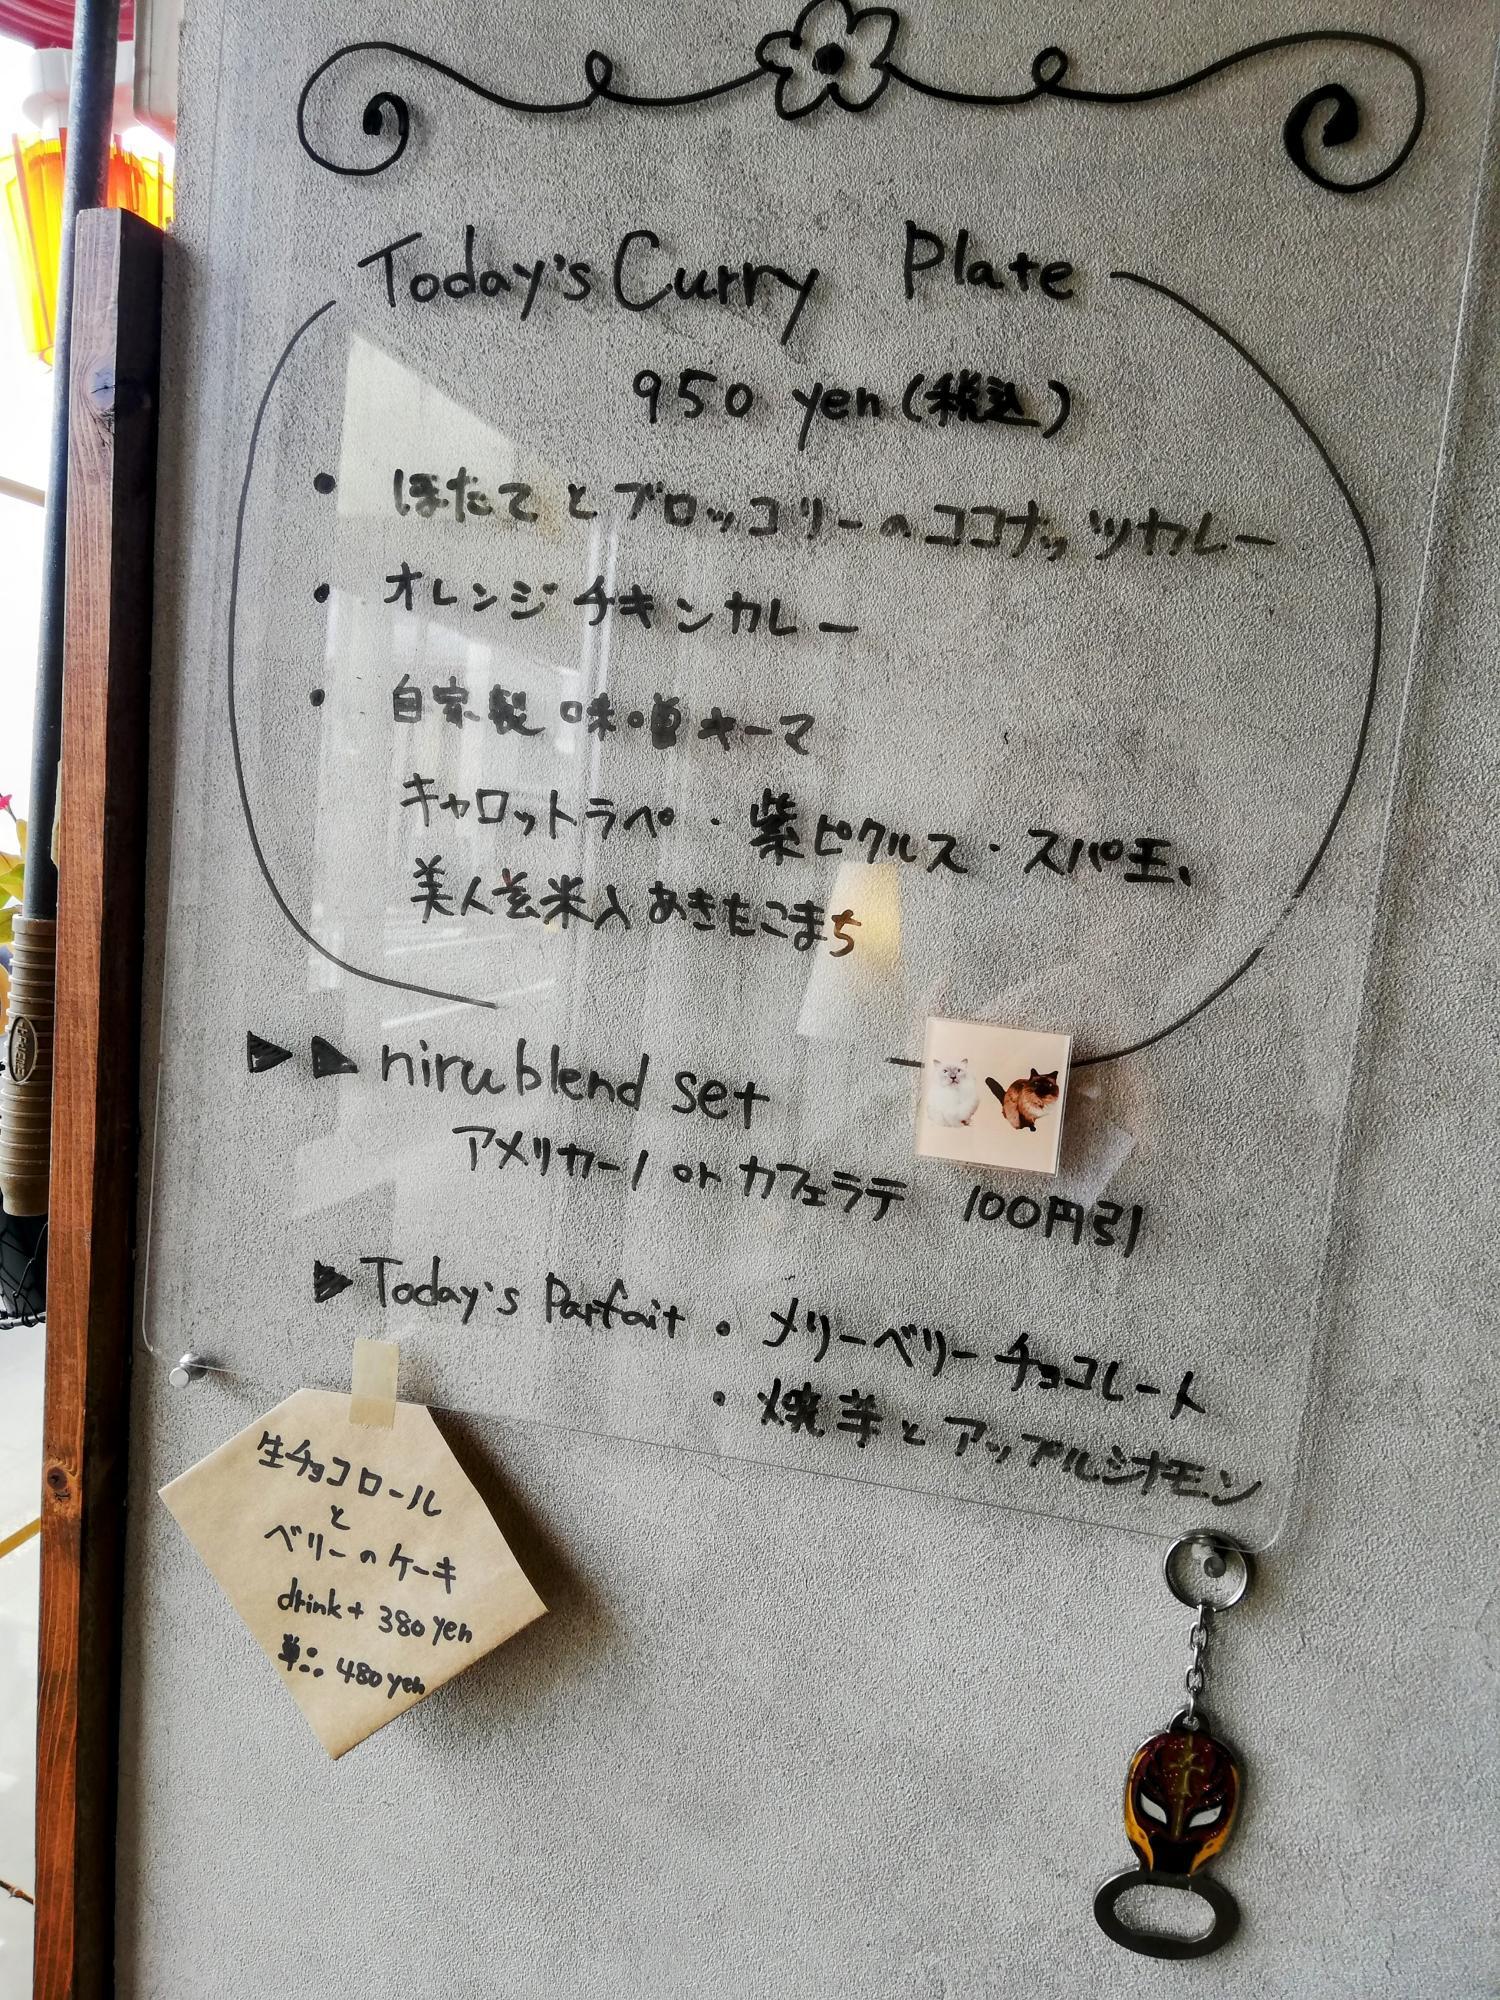 Today's Curry Plate
950 yen (税込)
・ ほたてとブロッコリーのココナッツカレー
・ オレンジチキンカレー
・ 自家製味噌キーマ
キャロットラペ・紫ピクルス・スパ玉、
美人玄米入あきたこまち
▶▶ niru blend set
アメリカーノ or カフェラテ 100円引
▶ Today's Parfait ・ メリーベリーチョコレート
・ 焼芋とアップルシナモン
生チョコロール
と
ベリーのケーキ
drink+ 380 yen
単品 480 yen